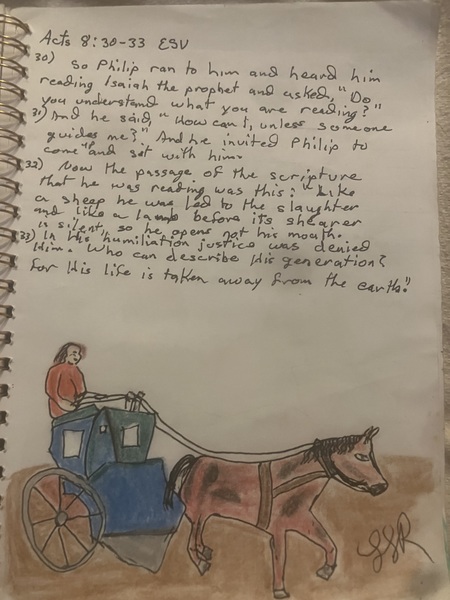 Acts 8:30-33 ESV
30) So Philip ran to him and heard him
reading Isaiah the prophet and asked, "Do
you understand what you are reading?"
31) And he said, "How can I, unless someone
guides me?" And he invited Philip to
come up and sit with him.
32) Now the passage of the scripture
that he was reading was this: "Like
a sheep he was led to the slaughter
and like a lamb before its shearer
is silent, so he opens not his mouth.
33) In His humiliation justice was denied
Him. Who can describe His generation?
For His life is taken away from the earth."